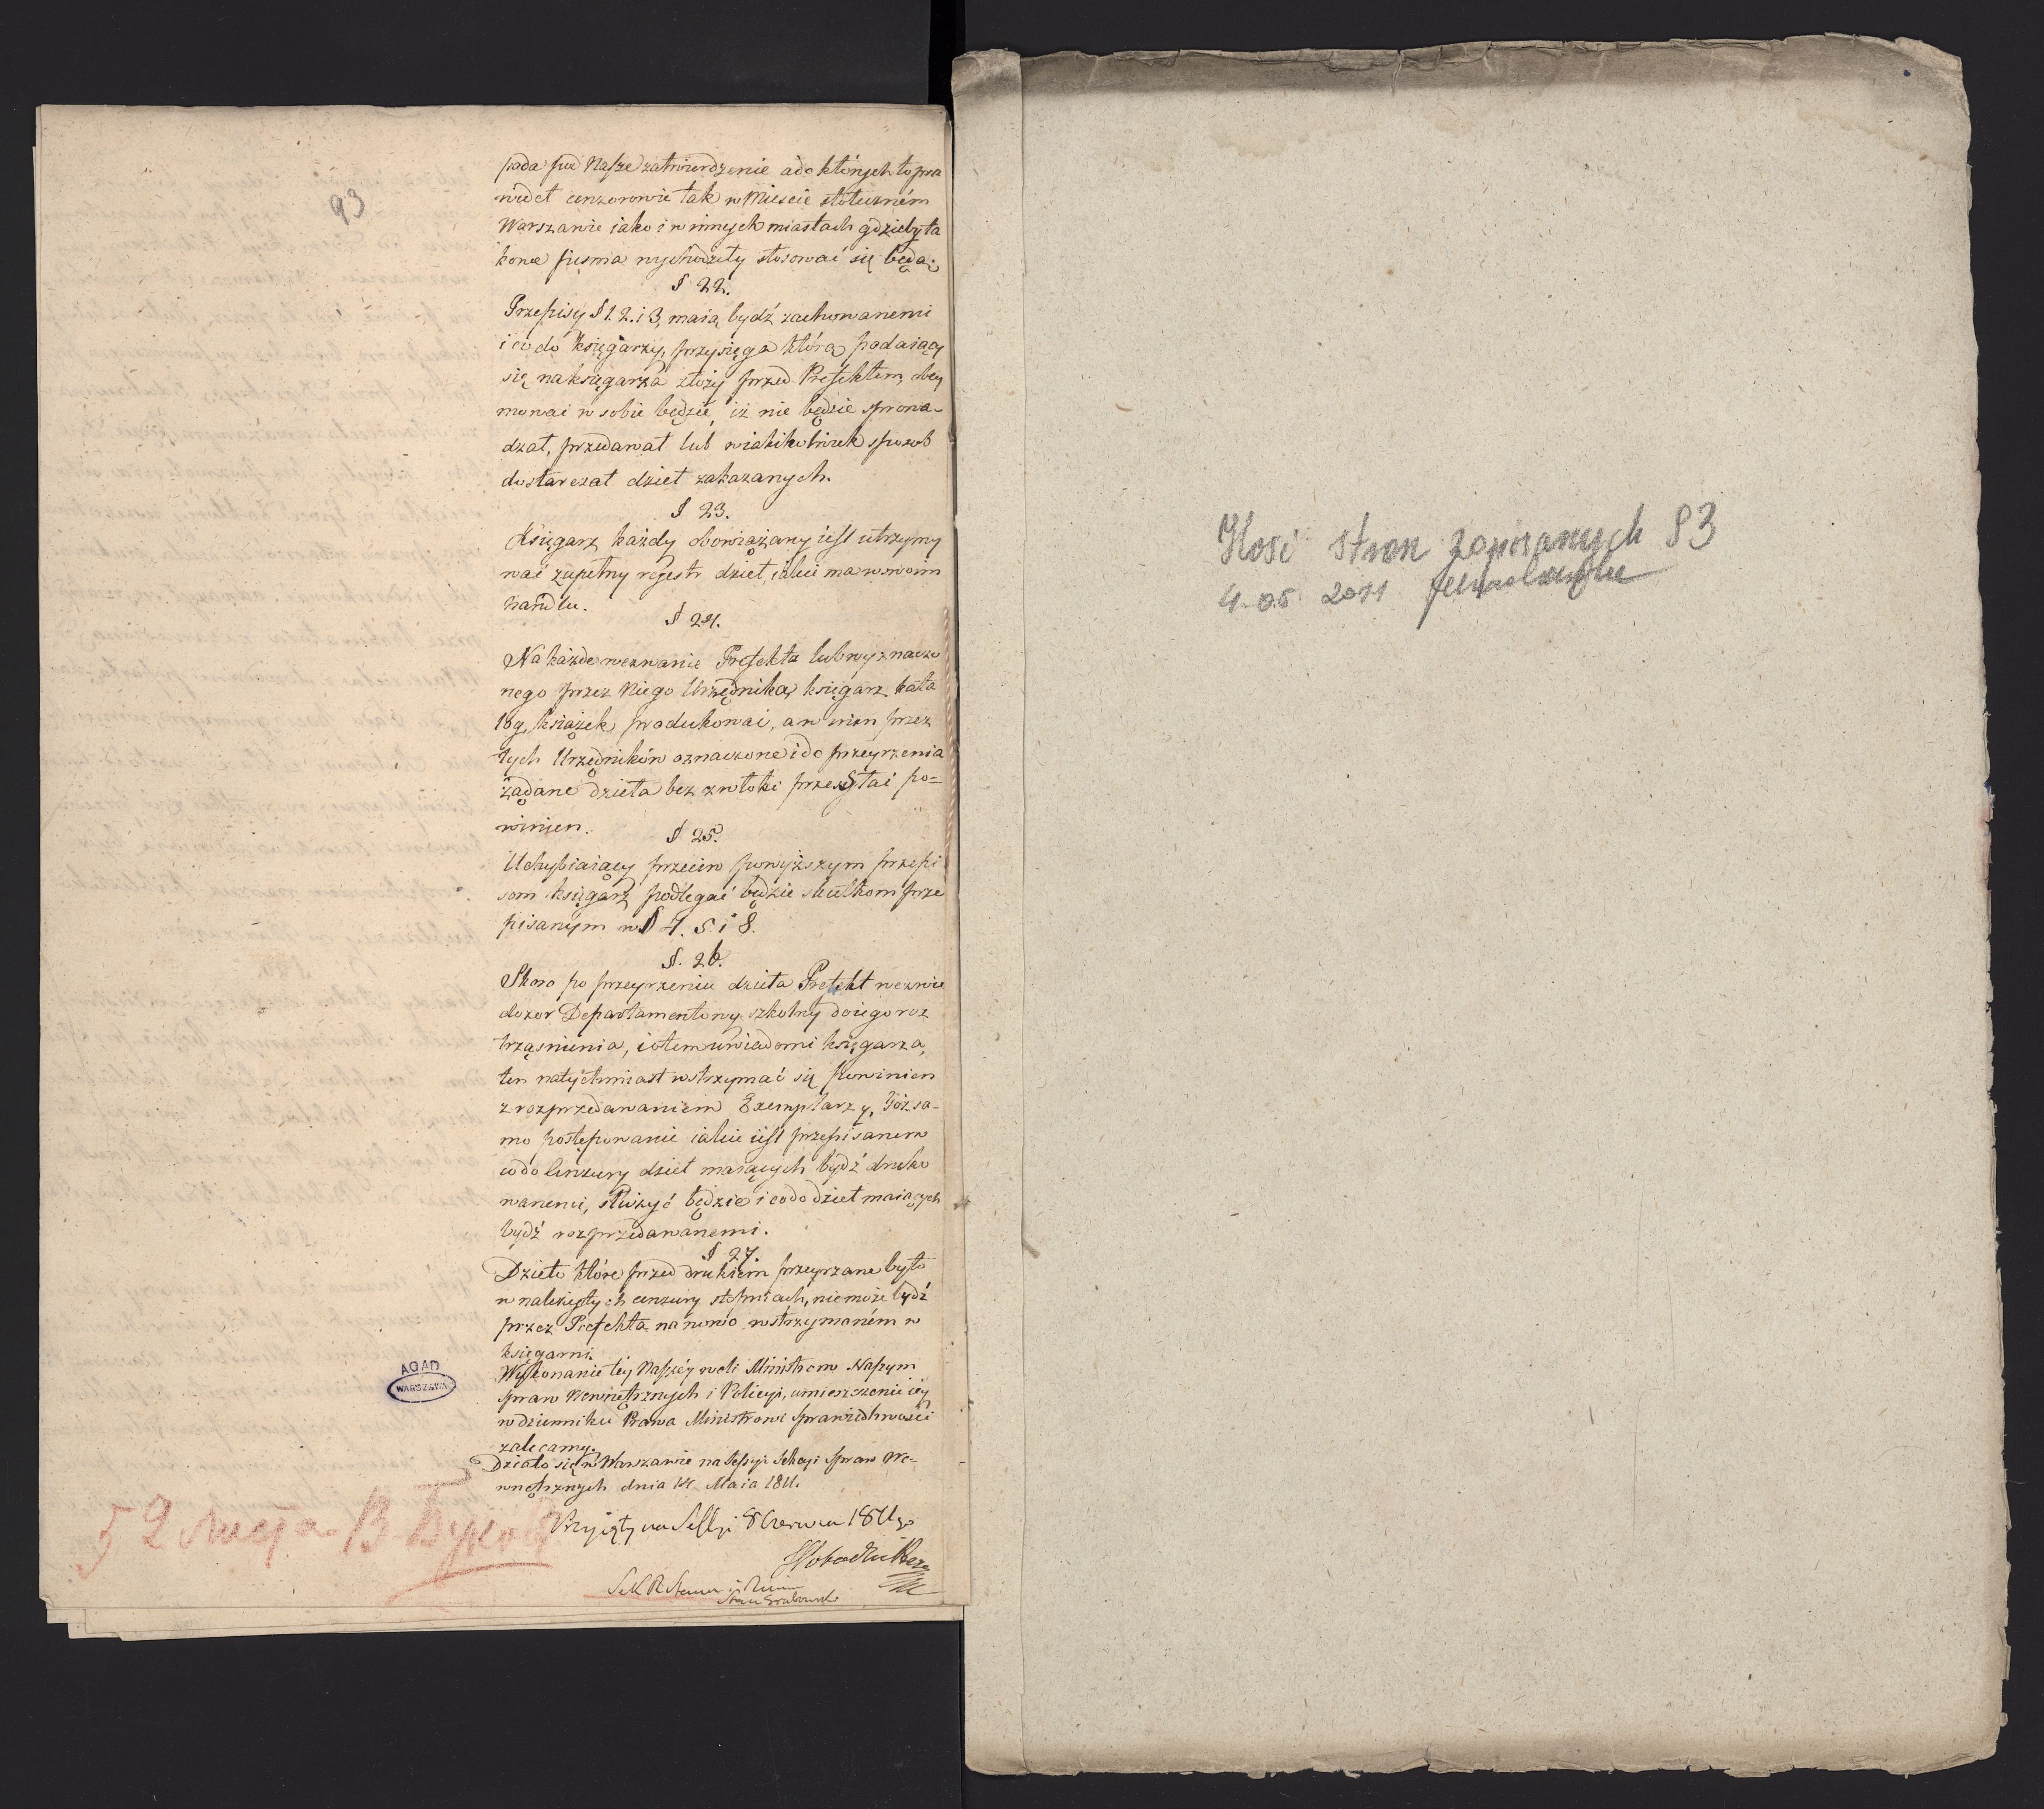 93
pada pod Nasze zatwierdzenie a do których to pra
wideł cenzorowie tak w Mieście stołeczném
Warszawie iako i w innych miastach gdzieby ta
kowe pisma wychodziły stosować się będą.
§ 22.
Przepisy § 1. 2. i 3, maią bydź zachowanemi
i co do księgarzy, przysięga którą podaiący
się na księgarza złoży przed Prefektem, obey
mować w sobie będzie, iż nie będzie sprowa-
dzał, przedawał lub w iakikolwiek sposob
dostarczał dzieł zakazanych.
§ 23.
Księgarz każdy obowiązany iest utrzymy
wać zupełny regestr dzieł, iakie ma w swoim
handlu.
§ 24.
Na każde wezwanie Prefekta lub wyznaczo
nego przez Niego Urzędnika, księgarz kata
log książek produkować, a w nim przez
tych Urzędników oznaczone i do przeyrzenia
żądane dzieła bez zwłoki przesłać po=
winien.
§ 25.
Uchybiaiący przeciw powyższym przepi
som księgarz podlegać będzie skutkom prze
pisanym w § 4. 5. i 8.
§. 26.
Skoro po przeyrzeniu dzieła Prefekt wezwie
dozor Departamentowy szkolny do iego roz
trząśnienia, i o tem uwiadomi księgarza,
ten natychmiast wstrzymać się powinien
z rozprzedawaniem Exemplarzy, Toż sa-
mo postępowanie iakie iest przepisanem
co do Cenzury dzieł maiących bydź druko
wanemi, służyć będzie i co do dzieł maiących
bydź rozprzedawanemi.
§ 27.
Dzieło które przed drukiem przeyrzane było
w należytych cenzury stopniach, nie może bydź
przez Prefekta na nowo wstrzymaném w
księgarni.
Wykonanie téy Naszéy woli Ministrom Naszym
Spraw Wewnętrznych i Policyi, umieszczenie iéy
w dzienniku Prawa Ministrowi Sprawiedliwości
zalecamy.
Działo się w Warszawie na Sessyi Sekcyi Spraw We-
wnętrznych dnia 14 Maia 1811.
Przyięty na Sessyi 8 Czerwca 1811 go
AGAD
WARSZAWA
Ilość stron zapisanych 93
4.05.2011